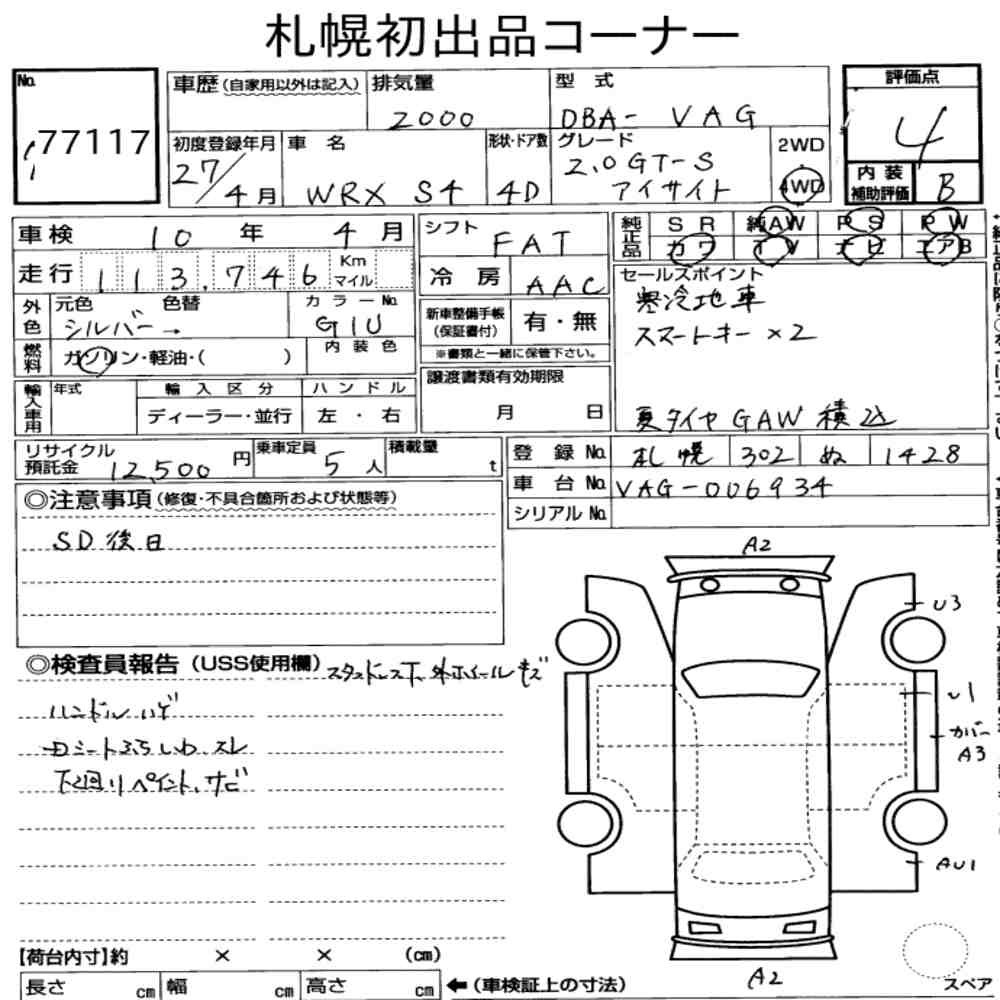 札幌初出品コーナー
No.
77117
車歴 (自家用以外は記入)
排気量
2000
型 式
DBA- VAG
評価点
4
内装補助評価 B
初度登録年月
27/4月
車 名
WRX S4
形状・ドア数
4D
グレード
2.0GT-S
アイサイト
2WD
4WD
車検 10 年 4 月
走行 113,746 Km マイル
シフト
FAT
冷房 AAC
純正品 SR 純AW PS PW
カワ TV ナビ エアB
外色 元色 色替
シルバー→
カラーNo.
G1U
燃料 ガソリン・軽油・( )
内装色
新車整備手帳 (保証書付) 有・無
※書類と一緒に保管下さい。
セールスポイント
寒冷地車
スマートキー×2
夏タイヤGAW積込
輸入車用 年式 輸入区分 ハンドル
ディーラー・並行 左・右
譲渡書類有効期限
月 日
リサイクル預託金 12,500円
乗車定員 5人
積載量 t
登録No. 札幌 302 ぬ 1428
車台No. VAG-006934
シリアルNo.
◎注意事項(修復・不具合箇所および状態等)
SD後日
◎検査員報告(USS使用欄)
スタッドレス下、外ホイールキズ
ハンドルハゲ
シートよごれ しわ スレ
下廻りペイント、サビ
A2
U3
U1
カバー
A3
AU1
A2
【荷台内寸】約 × × (cm)
長さ cm 幅 cm 高さ cm ←(車検証上の寸法)
スペア